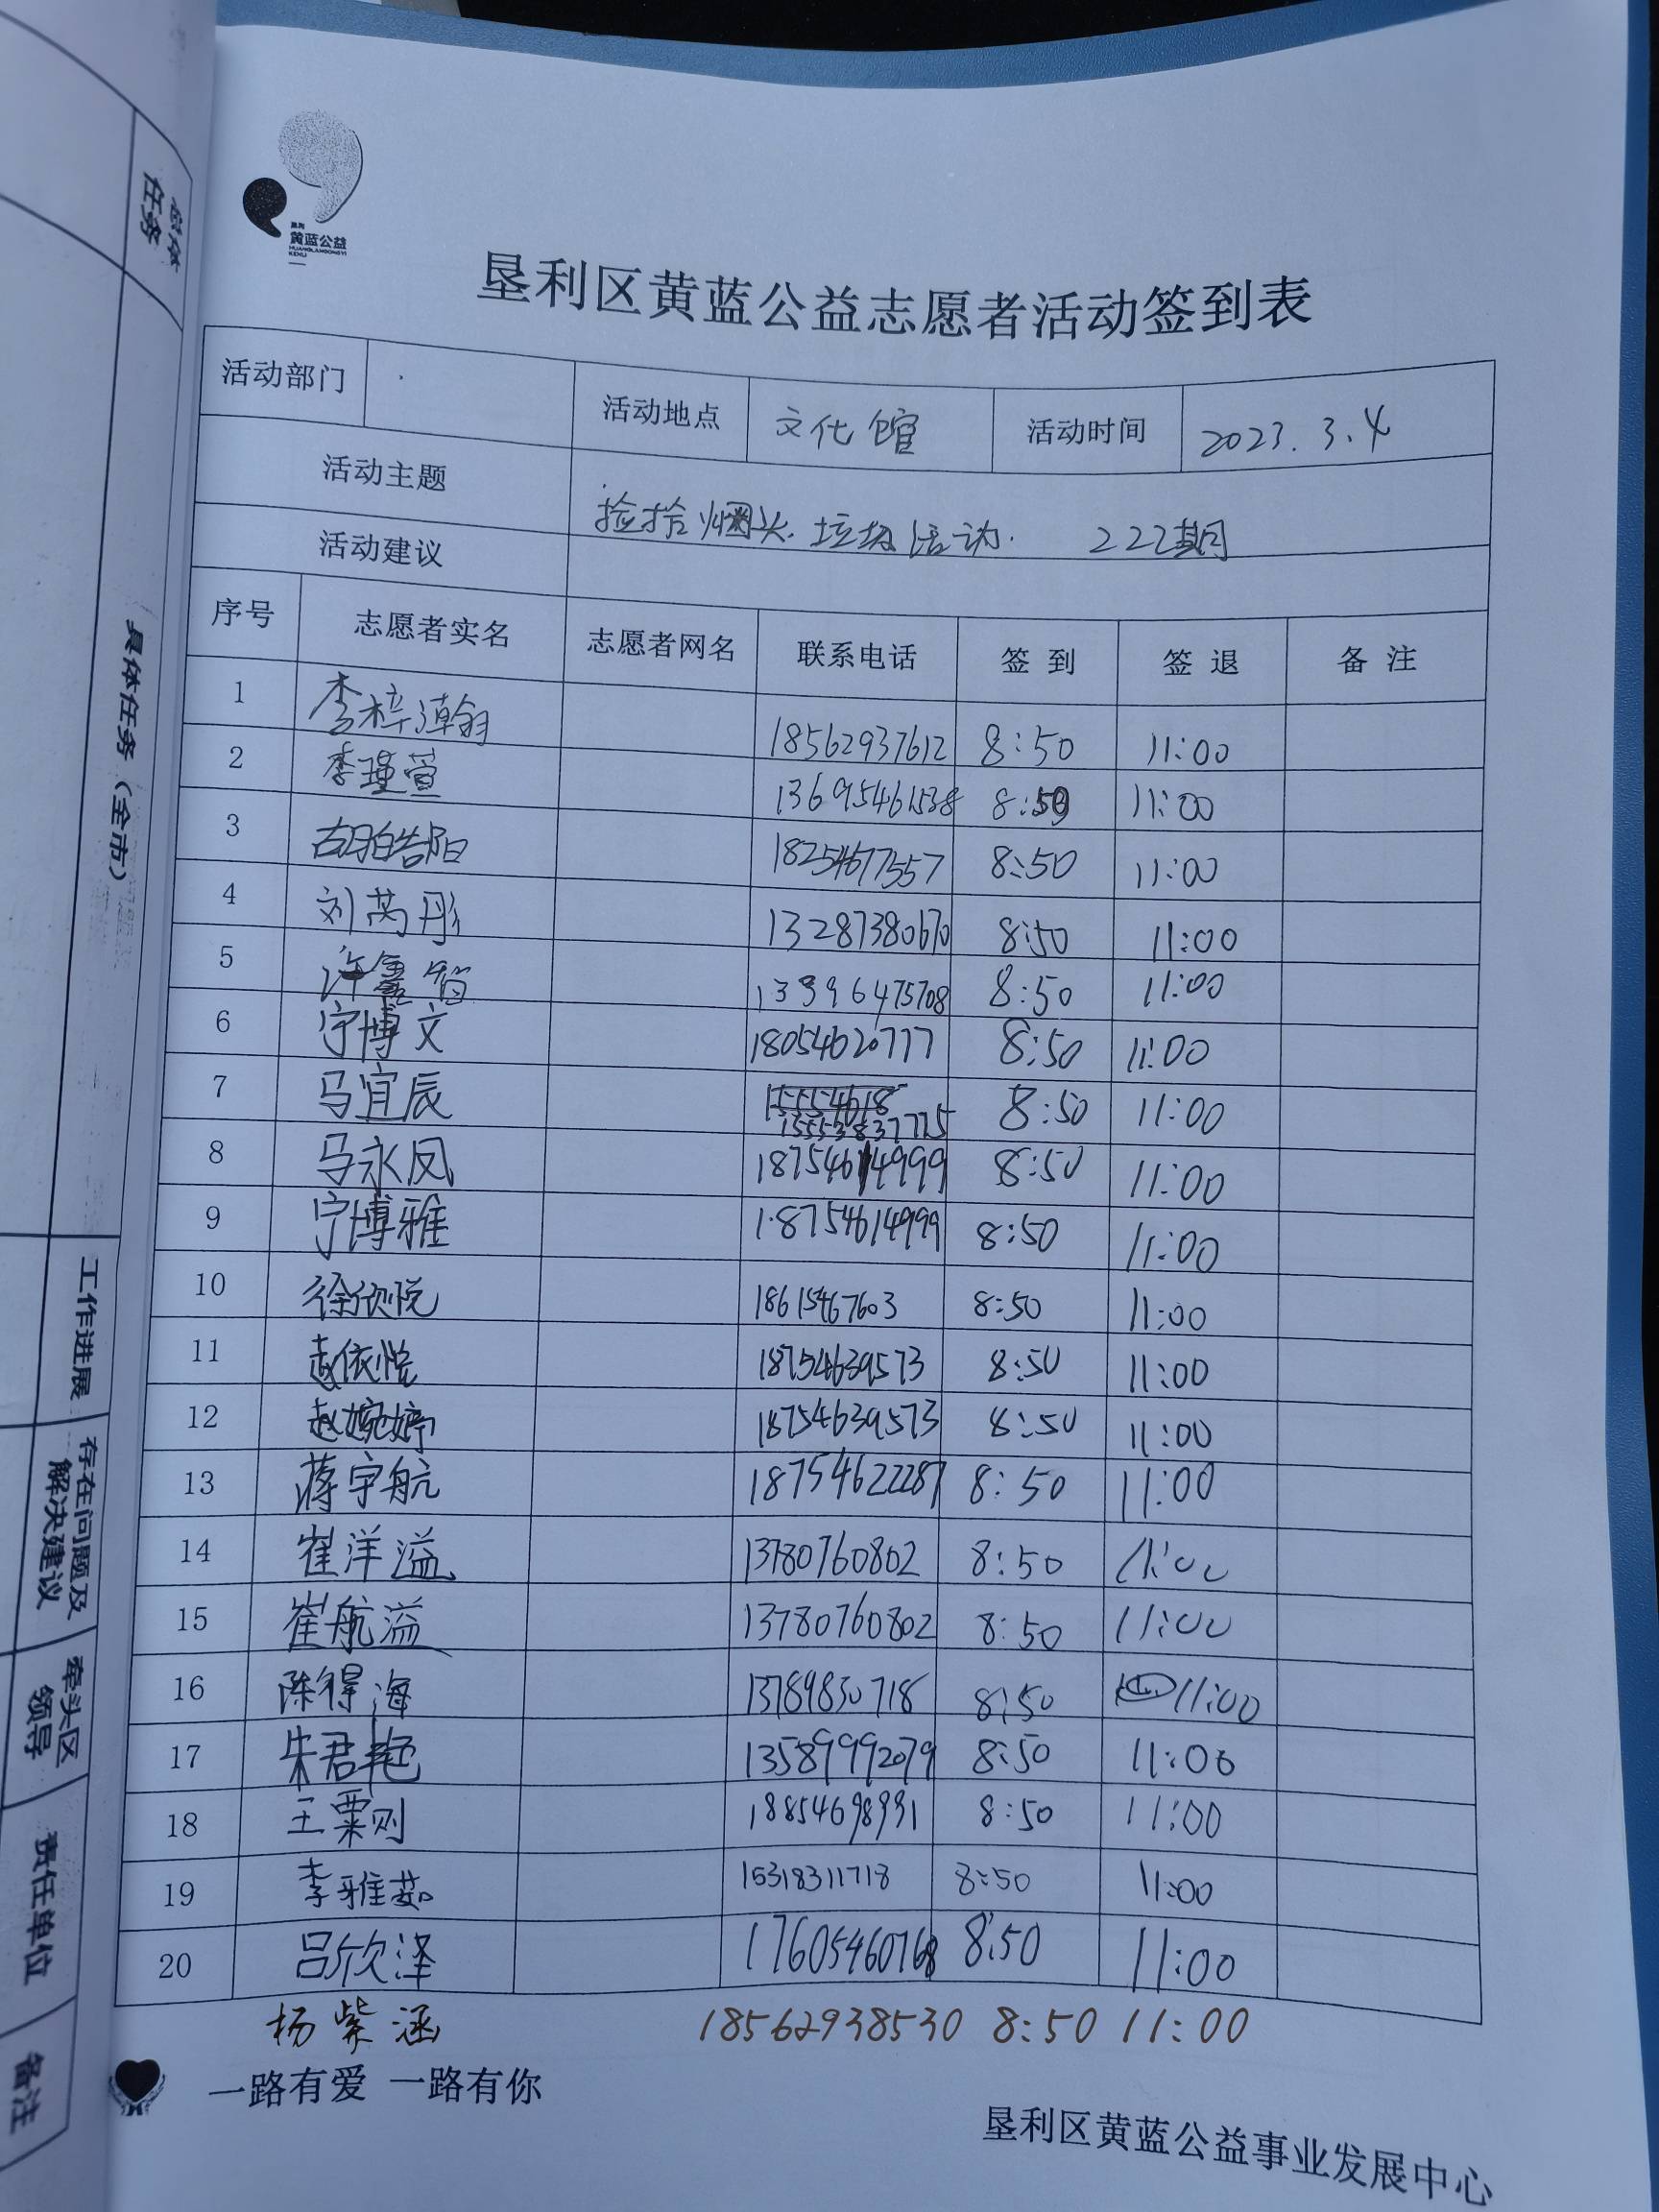 总体
任务
具体任务（全市）
工作进展
存在问题及
解决建议
牵头区
领导
责任单位
备注
垦利
黄蓝公益
HUANGLANGONGYI
KENLI
垦利区黄蓝公益志愿者活动签到表
活动部门 活动地点 文化馆 活动时间 2023.3.4
活动主题 捡拾烟头.垃圾活动. 222期
活动建议
序号 志愿者实名 志愿者网名 联系电话 签到 签退 备注
1 李梓漳翰 18562937612 8:50 11:00
2 李瑾萱 13695461538 8:50 11:00
3 胡皓阳 18254677557 8:50 11:00
4 刘芮彤 13287380670 8:50 11:00
5 许鑫智 13396475708 8:50 11:00
6 宁博文 18054620777 8:50 11:00
7 马宜辰 15553837775 8:50 11:00
8 马永凤 18754614999 8:50 11:00
9 宁博雅 18754614999 8:50 11:00
10 徐欣悦 18615467603 8:50 11:00
11 赵依悦 18754639573 8:50 11:00
12 赵婉婷 18754639573 8:50 11:00
13 蒋宇航 18754622287 8:50 11:00
14 崔洋溢 13780760802 8:50 11:00
15 崔航溢 13780760802 8:50 11:00
16 陈得海 13789830718 8:50 11:00
17 朱君艳 13589992079 8:50 11:00
18 王粟则 18854698931 8:50 11:00
19 李雅茹 15318311718 8:50 11:00
20 吕欣泽 17605460768 8:50 11:00
杨紫涵 18562938530 8:50 11:00
一路有爱 一路有你
垦利区黄蓝公益事业发展中心